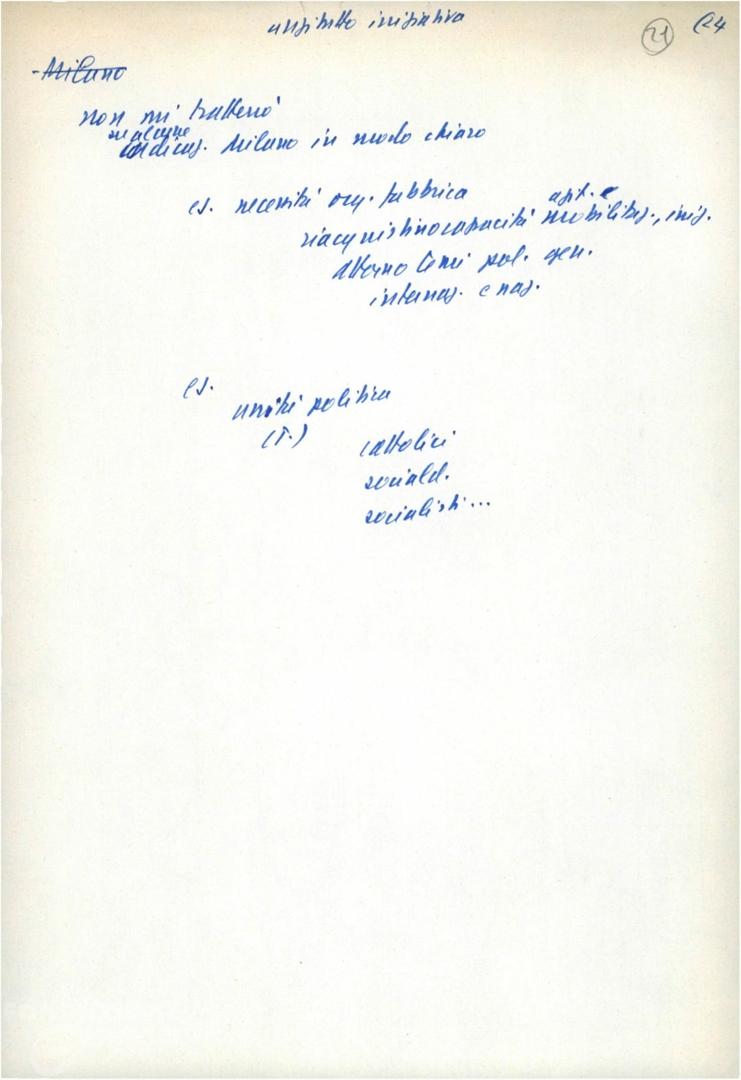 anzitutto iniziativa
21 24
- Milano
non mi tratterrò
su alcune
indicaz. Milano in modo chiaro
es. necessità org. fabbrica
agit. e
riacquistino capacità mobilitaz., iniz.
attorno temi pol. gen.
internaz. e naz.
es.
unità politica
(T.) cattolici
sociald.
socialisti...